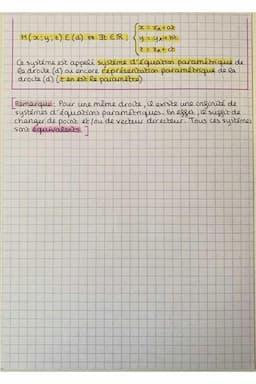 x = xA + at
M(x; y; t) E (d) ⇔ ∃t ∈ ℝ, { y = yA + bt
t = zA + ct
Ce système est appelé système d'équation paramétrique de
la droite (d) ou encore représentation paramétrique de la
droite (d) (t en est le paramètre)
Remarque: Pour une même droite, il existe une infinité de
systèmes d'équations paramétriques. En effet, il suffit de
changer de point et/ou de vecteur directeur. Tous ces systèmes
sont équivalents.